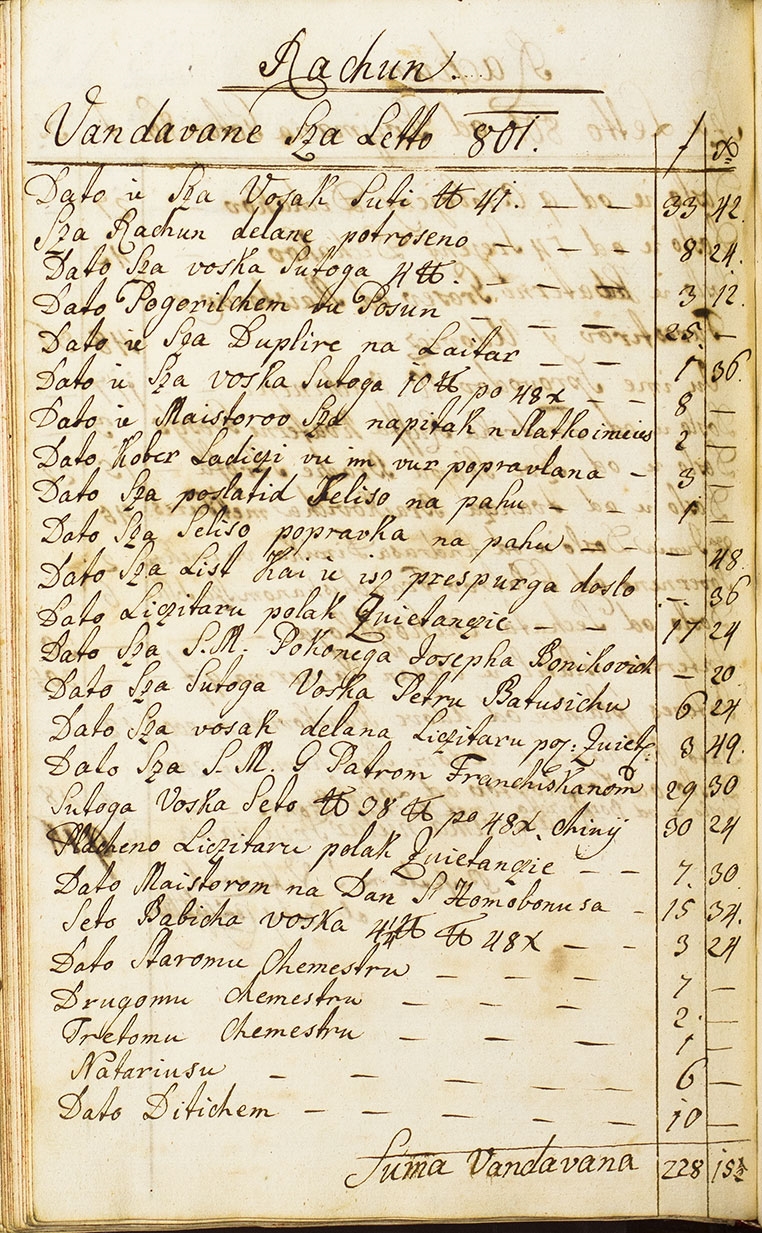 Rachun.
Vandavane Sza Letto 801. f x
Dato ie Sza Vosak Suti ℔ 41. — — 33 42.
Sza Rachun delane potroseno — — — 8 24.
Dato Sza voska Sutoga 4 ℔. — — — 3 12.
Dato Pogorilchem vu Posun — — — 25. —
Dato ie Sza Duplire na Laitar — — 1 36.
Dato ie Sza voska Sutoga 10 ℔ po 48x — — 8 —
Dato ie Maistoroo Sza napitak n Slatkoimeies 2 —
Dato Kober Ladiczi vu im vur popravlana — 3 —
Dato Sza poslatid Seliso na pahu — — 1 —
Dato Sza Seliso popravka na pahu — — — 48.
Dato Sza List Kai ie isz prespurga doslo — 36
Dato Liczitaru polak Quietanczie — — 17 24
Dato Sza S. M. Pokonega Josepha Bonikovich — 20.
Dato Sza Sutoga Voska Petru Batusichu 6 24
Dato Sza vosak delana Liczitaru poz: Quietc: 3 49.
Dato Sza S. M. G Patrom Franchiskanom 29 30
Sutoga Voska Seto ℔ 38 ℔ po 48x. chinij 30 24
Plácheno Liczitaru polak Quietanczie — — 7. 30.
Dato Maistorom na Dan S Homobonusa — 15 34.
Seto Babicha voska 4¼ ℔ ℔ 48x — — 3 24
Dato Staromu Chemestru — — — — 7 —
Drugomu Chemestru — — — — 2. —
Tretomu Chemestru — — — — 1 —
Natariusu — — — — — 6 —
Dato Ditichem — — — — — 10 —
Suma Vandavana 228 15½